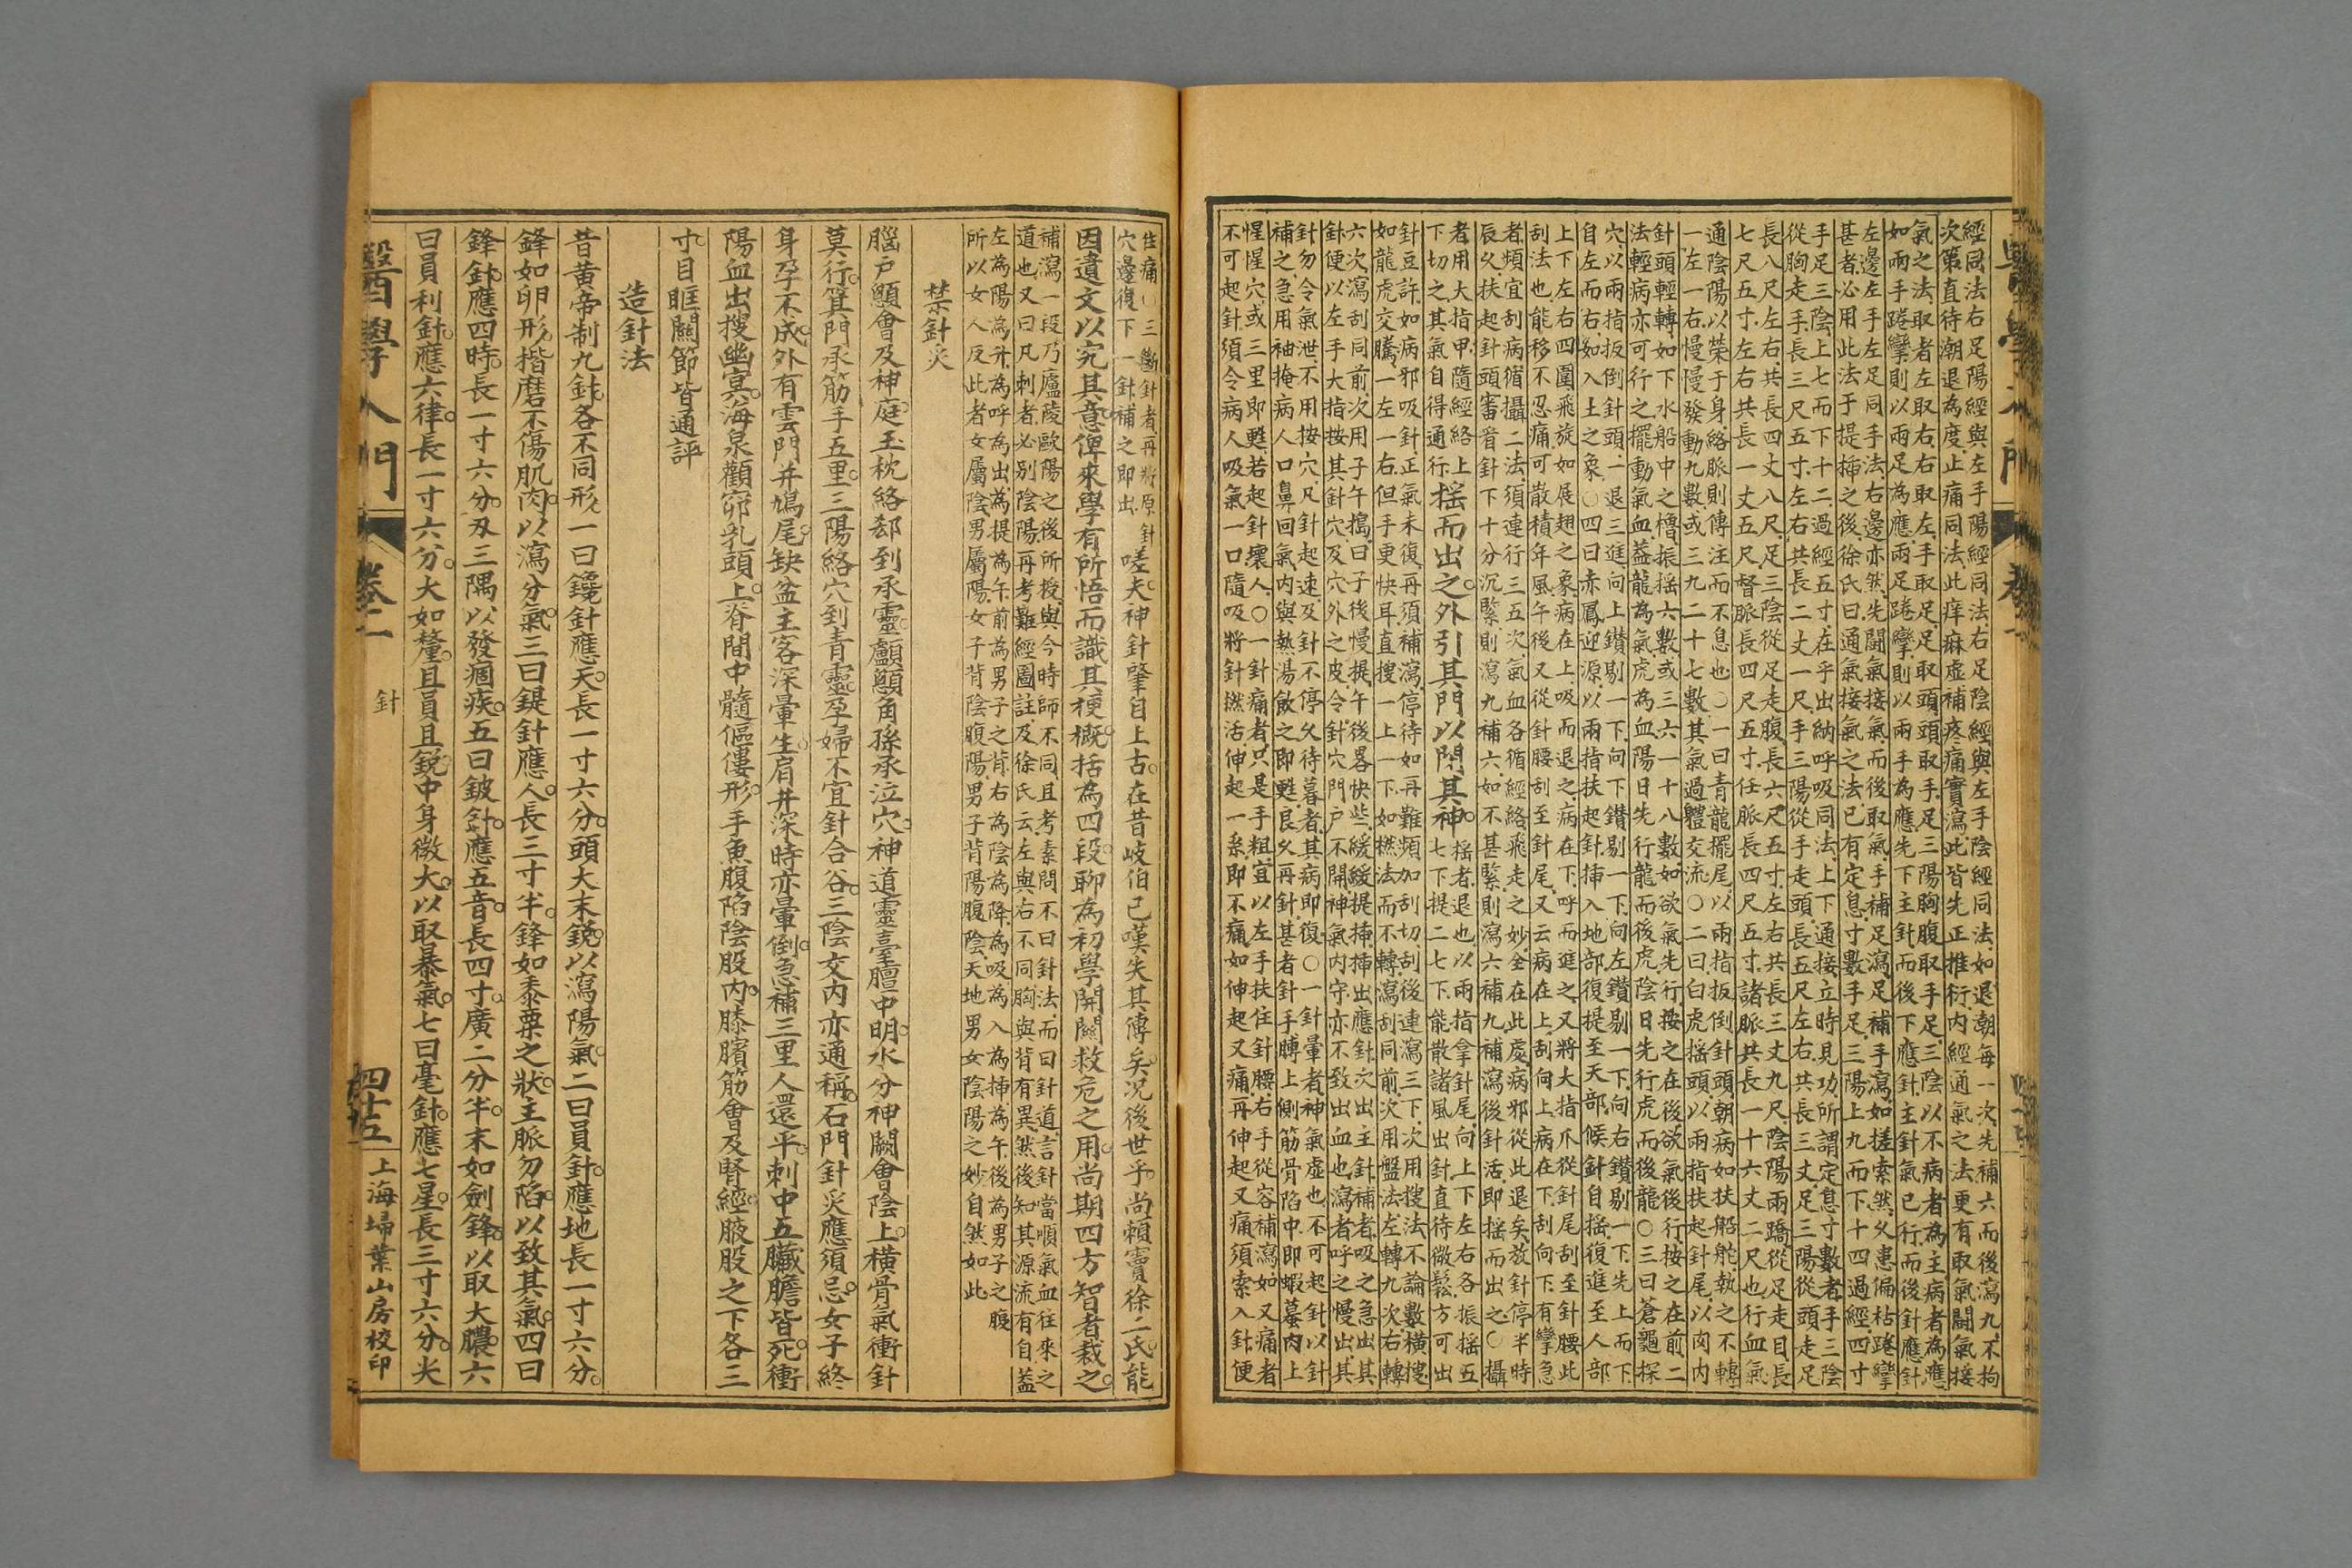 經同法右足陽經與左手陽經同法右足陰經與左手陰經同法如退潮每一次先補六而後瀉九不拘
次第直待潮退為度止痛同法此痒麻虛補疼痛實瀉此皆先正推衍內經通氣之法更有取氣鬪氣接
氣之法取者左取右右取左手取足足取頭頭取手足三陽胸腹取手足三陰以不病者為主病者為應
如兩手踡攣則以兩足為應兩足踡攣則以兩手為應先下主針而後下應針主針氣已行而後針應針
左邊左手左足同手法右邊亦然先鬪氣接氣而後取氣手補足瀉足補手瀉如搓索然久患偏枯踡攣
甚者必用此法于提揷之後徐氏曰通氣接氣之法已有定息寸數手足三陽上九而下十四過經四寸
手足三陰上七而下十二過經五寸在乎出納呼吸同法上下通接立時見功所謂定息寸數者手三陰
從胸走手長三尺五寸左右共長二丈一尺手三陽從手走頭長五尺左右共長三丈足三陽從頭走足
長八尺左右共長四丈八尺足三陰從足走腹長六尺五寸左右共長三丈九尺陰陽兩蹻從足走目長
七尺五寸左右共長一丈五尺督脈長四尺五寸任脈長四尺五寸諸脈共長一十六丈二尺也行血氣
通陰陽以榮于身絡脈則傳注而不息也〇一曰青龍擺尾以兩指扳倒針頭朝病如扶船舵執之不轉
一左一右慢慢發動九數或三九二十七數其氣過體交流〇二曰白虎搖頭以兩指扶起針尾以肉內
針頭輕轉如下水船中之櫓振搖六數或三六一十八數如欲氣先行按之在後欲氣後行按之在前二
法輕病亦可行之擺動氣血蓋龍為氣虎為血陽日先行龍而後虎陰日先行虎而後龍〇三曰蒼龜探
穴以兩指扳倒針頭一退三進向上鑽剔一下向下鑽剔一下向左鑽剔一下向右鑽剔一下先上而下
自左而右如入土之象〇四曰赤鳳迎源以兩指扶起針揷入地部復提至天部候針自搖復進至人部
上下左右四圍飛旋如展翅之象病在上吸而退之病在下呼而進之又將大指爪從針尾刮至針腰此
刮法也能移不忍痛可散積年風午後又從針腰刮至針尾又云病在上刮向上病在下刮向下有攣急
者頻宜刮病循攝二法須連行三五次氣血各循經絡飛走之妙全在此處病邪從此退矣放針停半時
辰久扶起針頭審看針下十分沉緊則瀉九補六如不甚緊則瀉六補九補瀉後針活即搖而出之〇攝
者用大指甲隨經絡上下切之其氣自得通行搖而出之外引其門以閉其神搖者退也以兩指拿針尾向上下左右各振搖五七下提二七下能散諸風出針直待微鬆方可出
針豆許如病邪吸針正氣未復再須補瀉停待如再難頻加刮切刮後連瀉三下次用搜法不論數橫搜
如龍虎交騰一左一右但手更快耳直搜一上一下如撚法而不轉瀉刮同前次用盤法左轉九次右轉
六次瀉刮同前次用子午搗臼子後慢提午後畧快些緩緩提揷揷出應針次出主針補者吸之急出其
針便以左手大指按其針穴及穴外之皮令針穴門戶不開神氣內守亦不致出血也瀉者呼之慢出其
針勿令氣泄不用按穴凡針起速及針不停久待暮者其病即復〇一針暈者神氣虛也不可起針以針
補之急用袖掩病人口鼻回氣內與熱湯飲之即甦良久再針甚者針手膊上側筋骨陷中即蝦蟇肉上
惺惺穴或三里即甦若起針壞人〇一針痛者只是手粗宜以左手扶住針腰右手從容補瀉如又痛者
不可起針須令病人吸氣一口隨吸將針撚活伸起一系即不痛如伸起又痛再伸起又痛須索入針便
住痛〇三斷針者再將原針穴邊復下一針補之即出嗟夫神針肇自上古在昔岐伯已嘆失其傳矣況後世乎尚賴竇徐二氏能
因遺文以究其意俾來學有所悟而識其梗概括為四段聊為初學開關救危之用尚期四方智者裁之
補瀉一段乃廬陵歐陽之後所授與今時師不同且考素問不曰針法而曰針道言針當順氣血往來之
道也又曰凡刺者必別陰陽再考難經圖註及徐氏云左與右不同胸與背有異然後知其源流有自蓋
左為陽為升為呼為出為提為午前為男子之背右為陰為降為吸為入為揷為午後為男子之腹
所以女人反此者女屬陰男屬陽女子背陰腹陽男子背陽腹陰天地男女陰陽之妙自然如此
禁針灸
腦戶顖會及神庭玉枕絡却到承靈顱顖角孫承泣穴神道靈臺膻中明水分神闕會陰上橫骨氣衝針
莫行箕門承筋手五里三陽絡穴到青靈孕婦不宜針合谷三陰交內亦通稱石門針灸應須忌女子終
身孕不成外有雲門并鳩尾缺盆主客深暈生肩井深時亦暈倒急補三里人還平刺中五臟膽皆死衝
陽血出搜幽冥海泉顴窌乳頭上脊間中髓傴僂形手魚腹陷陰股內膝臏筋會及腎經腋股之下各三
寸目眶關節皆通評
造針法
昔黃帝制九針各不同形一曰鑱針應天長一寸六分頭大末銳以瀉陽氣二曰員針應地長一寸六分
鋒如卵形揩磨不傷肌肉以瀉分氣三曰鍉針應人長三寸半鋒如黍粟之狀主脈勿陷以致其氣四曰
鋒針應四時長一寸六分刃三隅以發痼疾五曰鈹針應五音長四寸廣二分半末如劍鋒以取大膿六
曰員利針應六律長一寸六分大如釐且員且銳中身微大以取暴氣七曰毫針應七星長三寸六分尖
醫學入門 卷二 針 四十五 上海埽葉山房校印